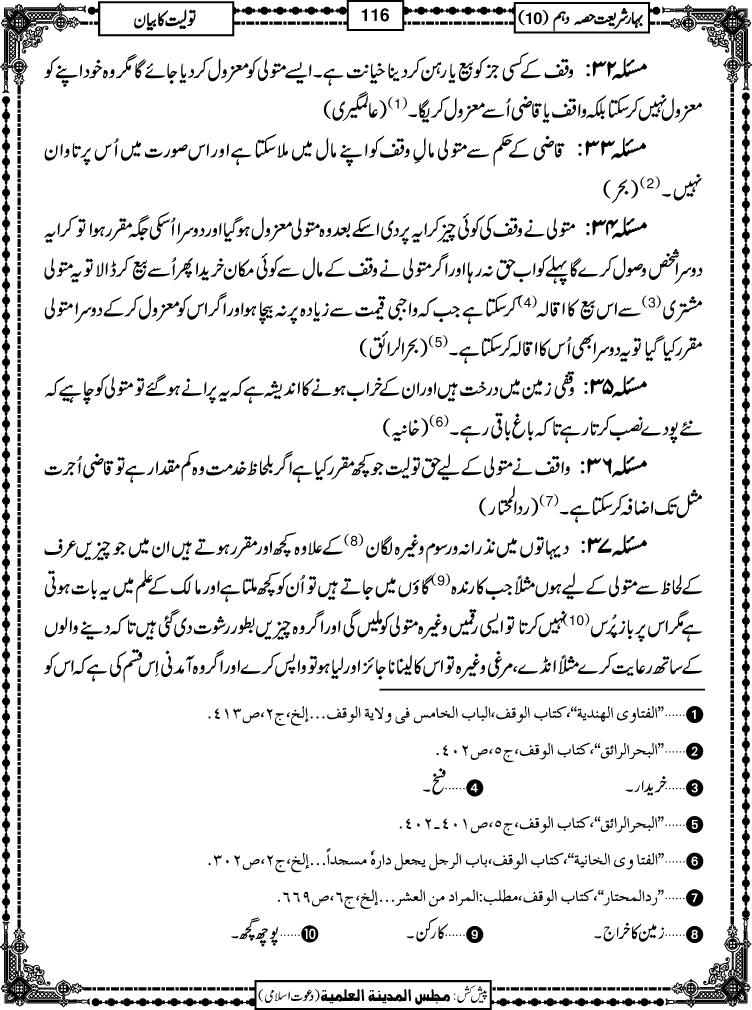 بہار شریعت حصہ دہم (10)
116
تولیت کا بیان
مسئلہ ۳۲: وقف کے کسی جز کو بیع یا رہن کر دینا خیانت ہے۔ ایسے متولی کو معزول کر دیا جائے گا مگر وہ خود اپنے کو
معزول نہیں کر سکتا بلکہ واقف یا قاضی اُسے معزول کریگا۔(1) (عالمگیری)
مسئلہ ۳۳: قاضی کے حکم سے متولی مالِ وقف کو اپنے مال میں ملا سکتا ہے اور اس صورت میں اُس پر تاوان
نہیں۔(2) (بحر)
مسئلہ ۳۴: متولی نے وقف کی کوئی چیز کرایہ پر دی اسکے بعد وہ متولی معزول ہو گیا اور دوسرا اُسکی جگہ مقرر ہوا تو کرایہ
دوسرا شخص وصول کرے گا پہلے کو اب حق نہ رہا اور اگر متولی نے وقف کے مال سے کوئی مکان خریدا پھر اُسے بیع کر ڈالا تو یہ متولی
مشتری(3) سے اس بیع کا اقالہ(4) کر سکتا ہے جب کہ واجبی قیمت سے زیادہ پر نہ بیچا ہو اور اگر اس کو معزول کر کے دوسرا متولی
مقرر کیا گیا تو یہ دوسرا بھی اُس کا اقالہ کر سکتا ہے۔(5) (بحر الرائق)
مسئلہ ۳۵: وقفی زمین میں درخت ہیں اور ان کے خراب ہونے کا اندیشہ ہے کہ یہ پرانے ہو گئے تو متولی کو چاہیے کہ
نئے پودے نصب کرتا رہے تا کہ باغ باقی رہے۔(6) (خانیہ)
مسئلہ ۳۶: واقف نے متولی کے لیے حق تولیت جو کچھ مقرر کیا ہے اگر بلحاظ خدمت وہ کم مقدار ہے تو قاضی اُجرت
مثل تک اضافہ کر سکتا ہے۔(7) (ردالمحتار)
مسئلہ ۳۷: دیہاتوں میں نذرانہ و رسوم وغیرہ لگان(8) کے علاوہ کچھ اور مقرر ہوتے ہیں ان میں جو چیزیں عرف
کے لحاظ سے متولی کے لیے ہوں مثلاً جب کارندہ(9) گاؤں میں جاتے ہیں تو اُن کو کچھ ملتا ہے اور مالک کے علم میں یہ بات ہوتی
ہے مگر اس پر باز پُرس(10) نہیں کرتا تو ایسی رقمیں وغیرہ متولی کو ملیں گی اور اگر وہ چیزیں بطور رشوت دی گئی ہیں تا کہ دینے والوں
کے ساتھ رعایت کرے مثلاً انڈے، مرغی وغیرہ تو اس کا لینا ناجائز اور لیا ہو تو واپس کرے اور اگر وہ آمدنی اِس قسم کی ہے کہ اس کو
1......”الفتاوی الهندية“، كتاب الوقف، الباب الخامس فی ولاية الوقف...إلخ، ج٢، ص٤١٣.
2......”البحرالرائق“، كتاب الوقف، ج٥، ص٤٠٢.
3......خریدار۔ 4......فسخ۔
5......”البحرالرائق“، كتاب الوقف، ج٥، ص٤٠١-٤٠٢.
6......”الفتاوی الخانية“، كتاب الوقف، باب الرجل يجعل دارهٗ مسجداً...إلخ، ج٢، ص٣٠٢.
7......”ردالمحتار“، كتاب الوقف، مطلب: المراد من العشر...إلخ، ج٦، ص٦٦٩.
8......زمین کا خراج۔ 9......کارکن۔ 10......پوچھ گچھ۔
پیش کش: مجلس المدینة العلمیة (دعوت اسلامی)